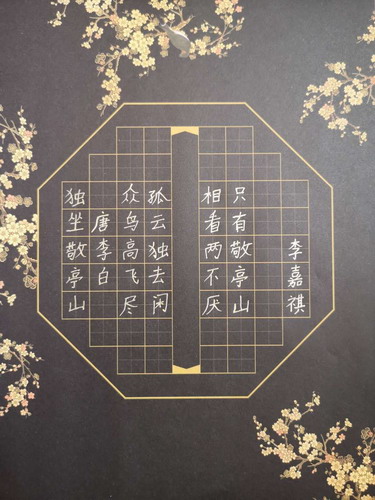 独坐敬亭山
唐李白
众鸟高飞尽
孤云独去闲
相看两不厌
只有敬亭山
李嘉祺